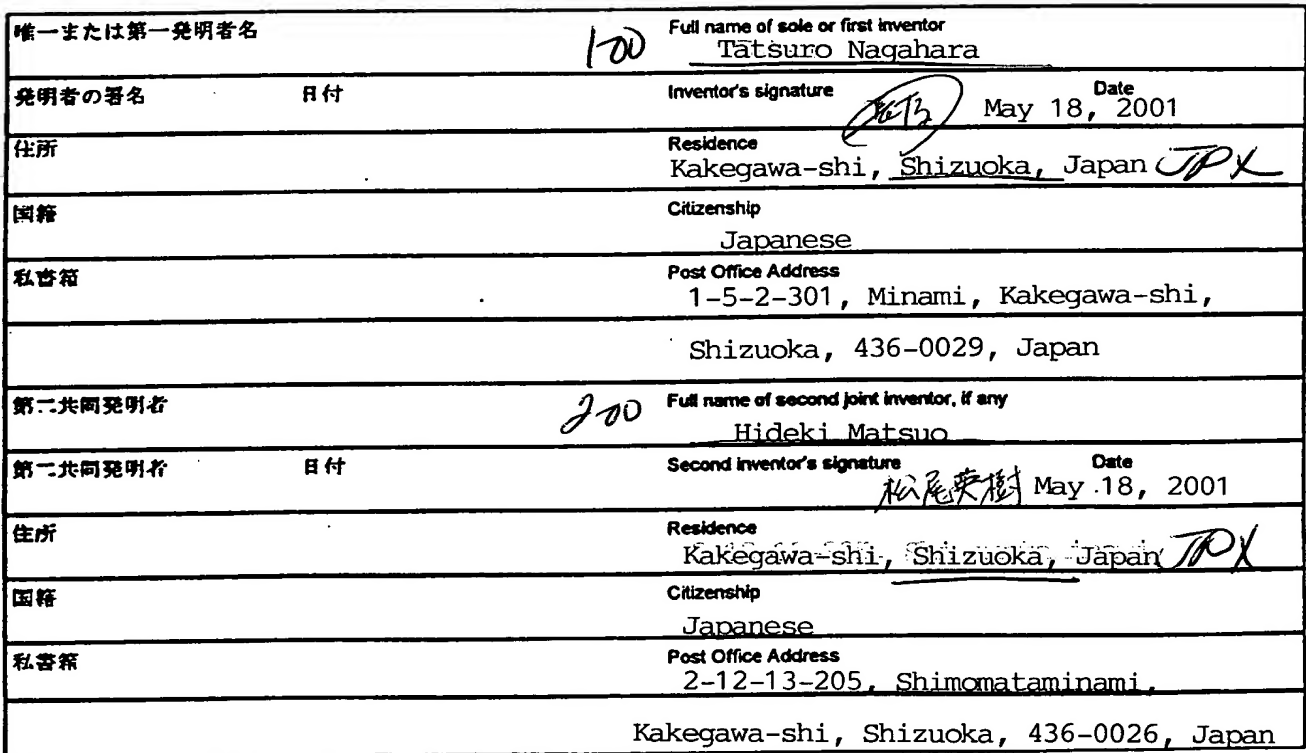 唯一または第一発明者名
100 Full name of sole or first inventor
Tatsuro Nagahara
発明者の署名 日付 Inventor's signature Date
May 18, 2001
住所 Residence
Kakegawa-shi, Shizuoka, Japan JPX
国籍 Citizenship
Japanese
私書箱 Post Office Address
1-5-2-301, Minami, Kakegawa-shi,
Shizuoka, 436-0029, Japan
第二共同発明者 200 Full name of second joint inventor, if any
Hideki Matsuo
第二共同発明者 日付 Second inventor's signature Date
松尾英樹 May 18, 2001
住所 Residence
Kakegawa-shi, Shizuoka, Japan JPX
国籍 Citizenship
Japanese
私書箱 Post Office Address
2-12-13-205, Shimomataminami,
Kakegawa-shi, Shizuoka, 436-0026, Japan